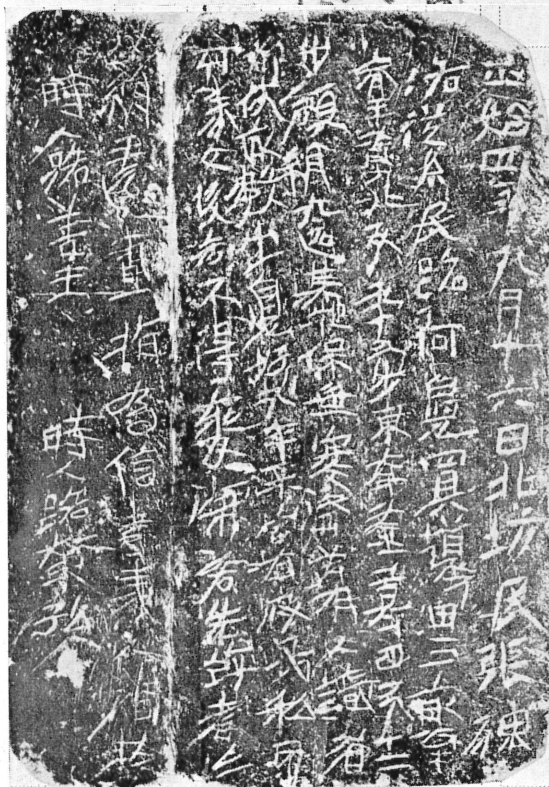 正始四年九月十六日北坊民張神
洛從縣民路阿兜買墓田三畝南
齊王墓北五十三步東齊墓西十二
步碩絹九匹其地保無寒盜若有人識者
抑伐畝數出兜好官有政民私
立券文後各不得變悔若先悔者出
北絹五匹畫指為信書券人潘
時人路善王 時人路榮孫